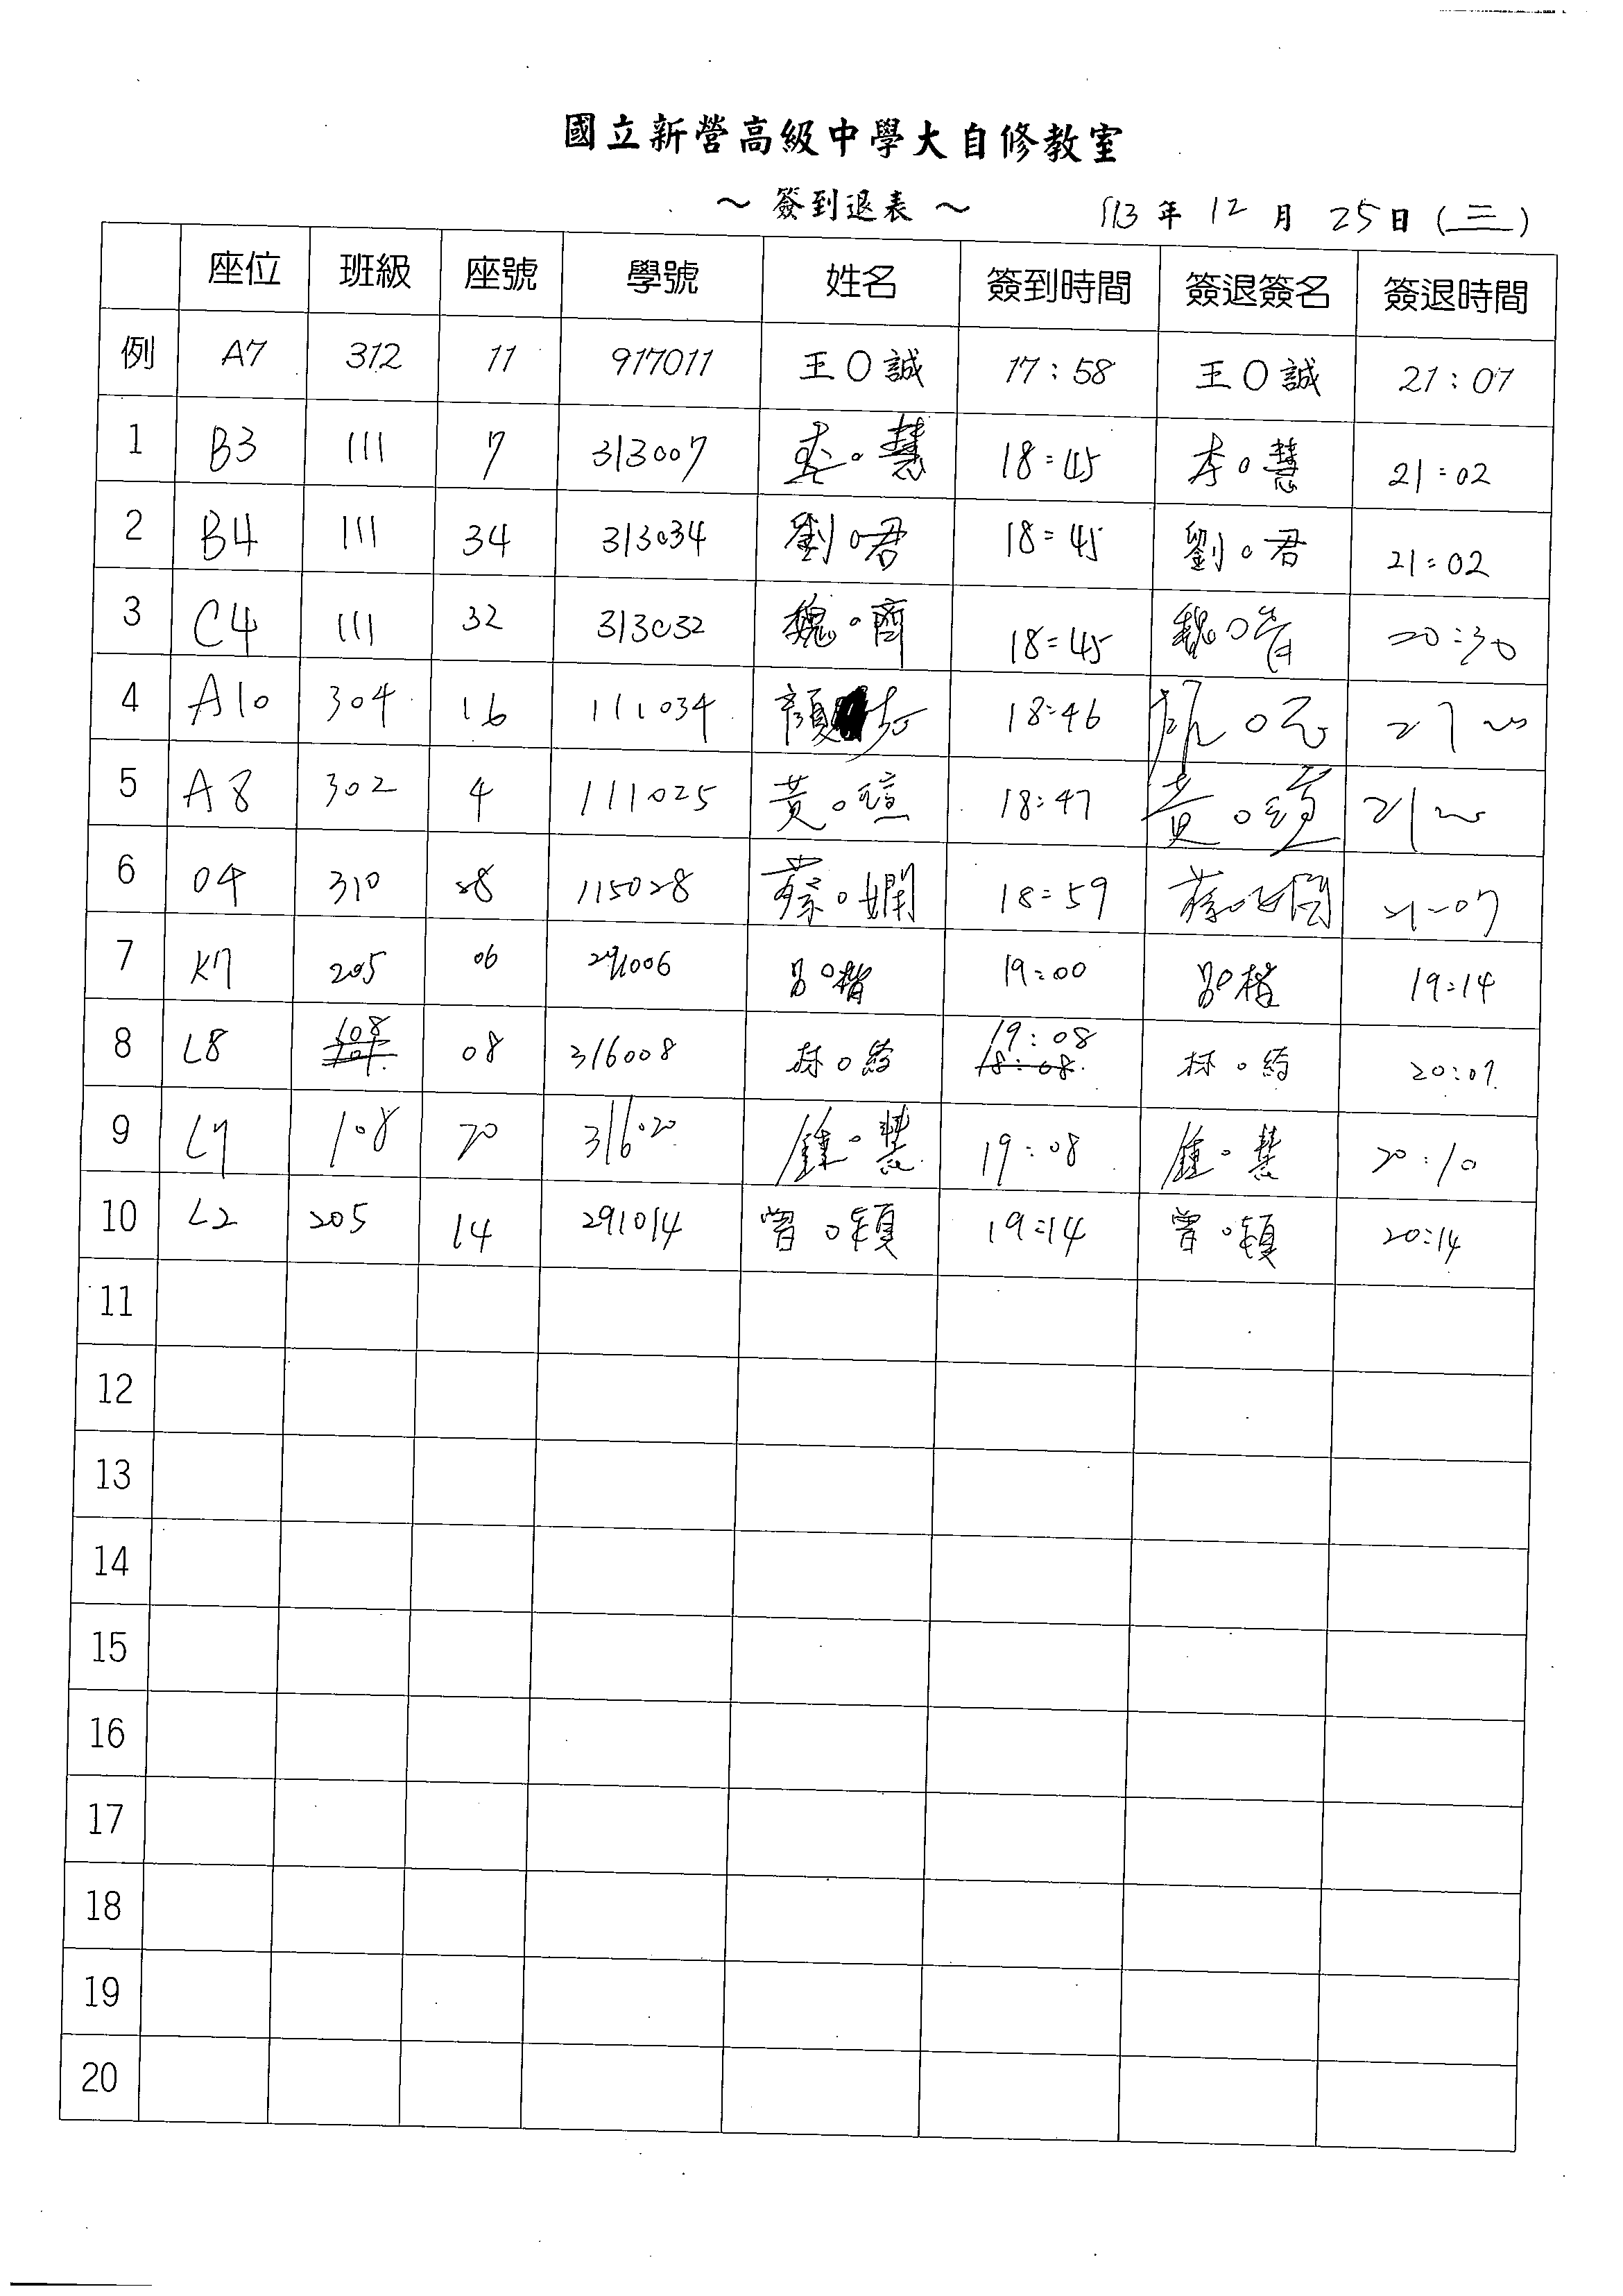 國立新營高級中學大自修教室
～ 簽到退表 ～ 113 年 12 月 25 日 (三)
座位 班級 座號 學號 姓名 簽到時間 簽退簽名 簽退時間
例 A7 312 11 917011 王○誠 17:58 王○誠 21:07
1 B3 111 7 313007 李○慧 18:45 李○慧 21:02
2 B4 111 34 313034 劉○君 18:45 劉○君 21:02
3 C4 111 32 313032 魏○齊 18:45 魏○齊 20:30
4 A10 304 16 111034 顏 18:46 21
5 A8 302 4 111025 黃○瑄 18:47 黃○瑄 21
6 O4 310 28 115028 蔡○嫻 18:59 蔡○嫻 21:07
7 K7 205 06 291006 呂○楷 19:00 呂○楷 19:14
8 L8 108 08 316008 林○綺 19:08 18:08 林○綺 20:07
9 L7 108 20 316020 鍾○慧 19:08 鍾○慧 20:10
10 L2 205 14 291014 曾○穎 19:14 曾○穎 20:14
11
12
13
14
15
16
17
18
19
20